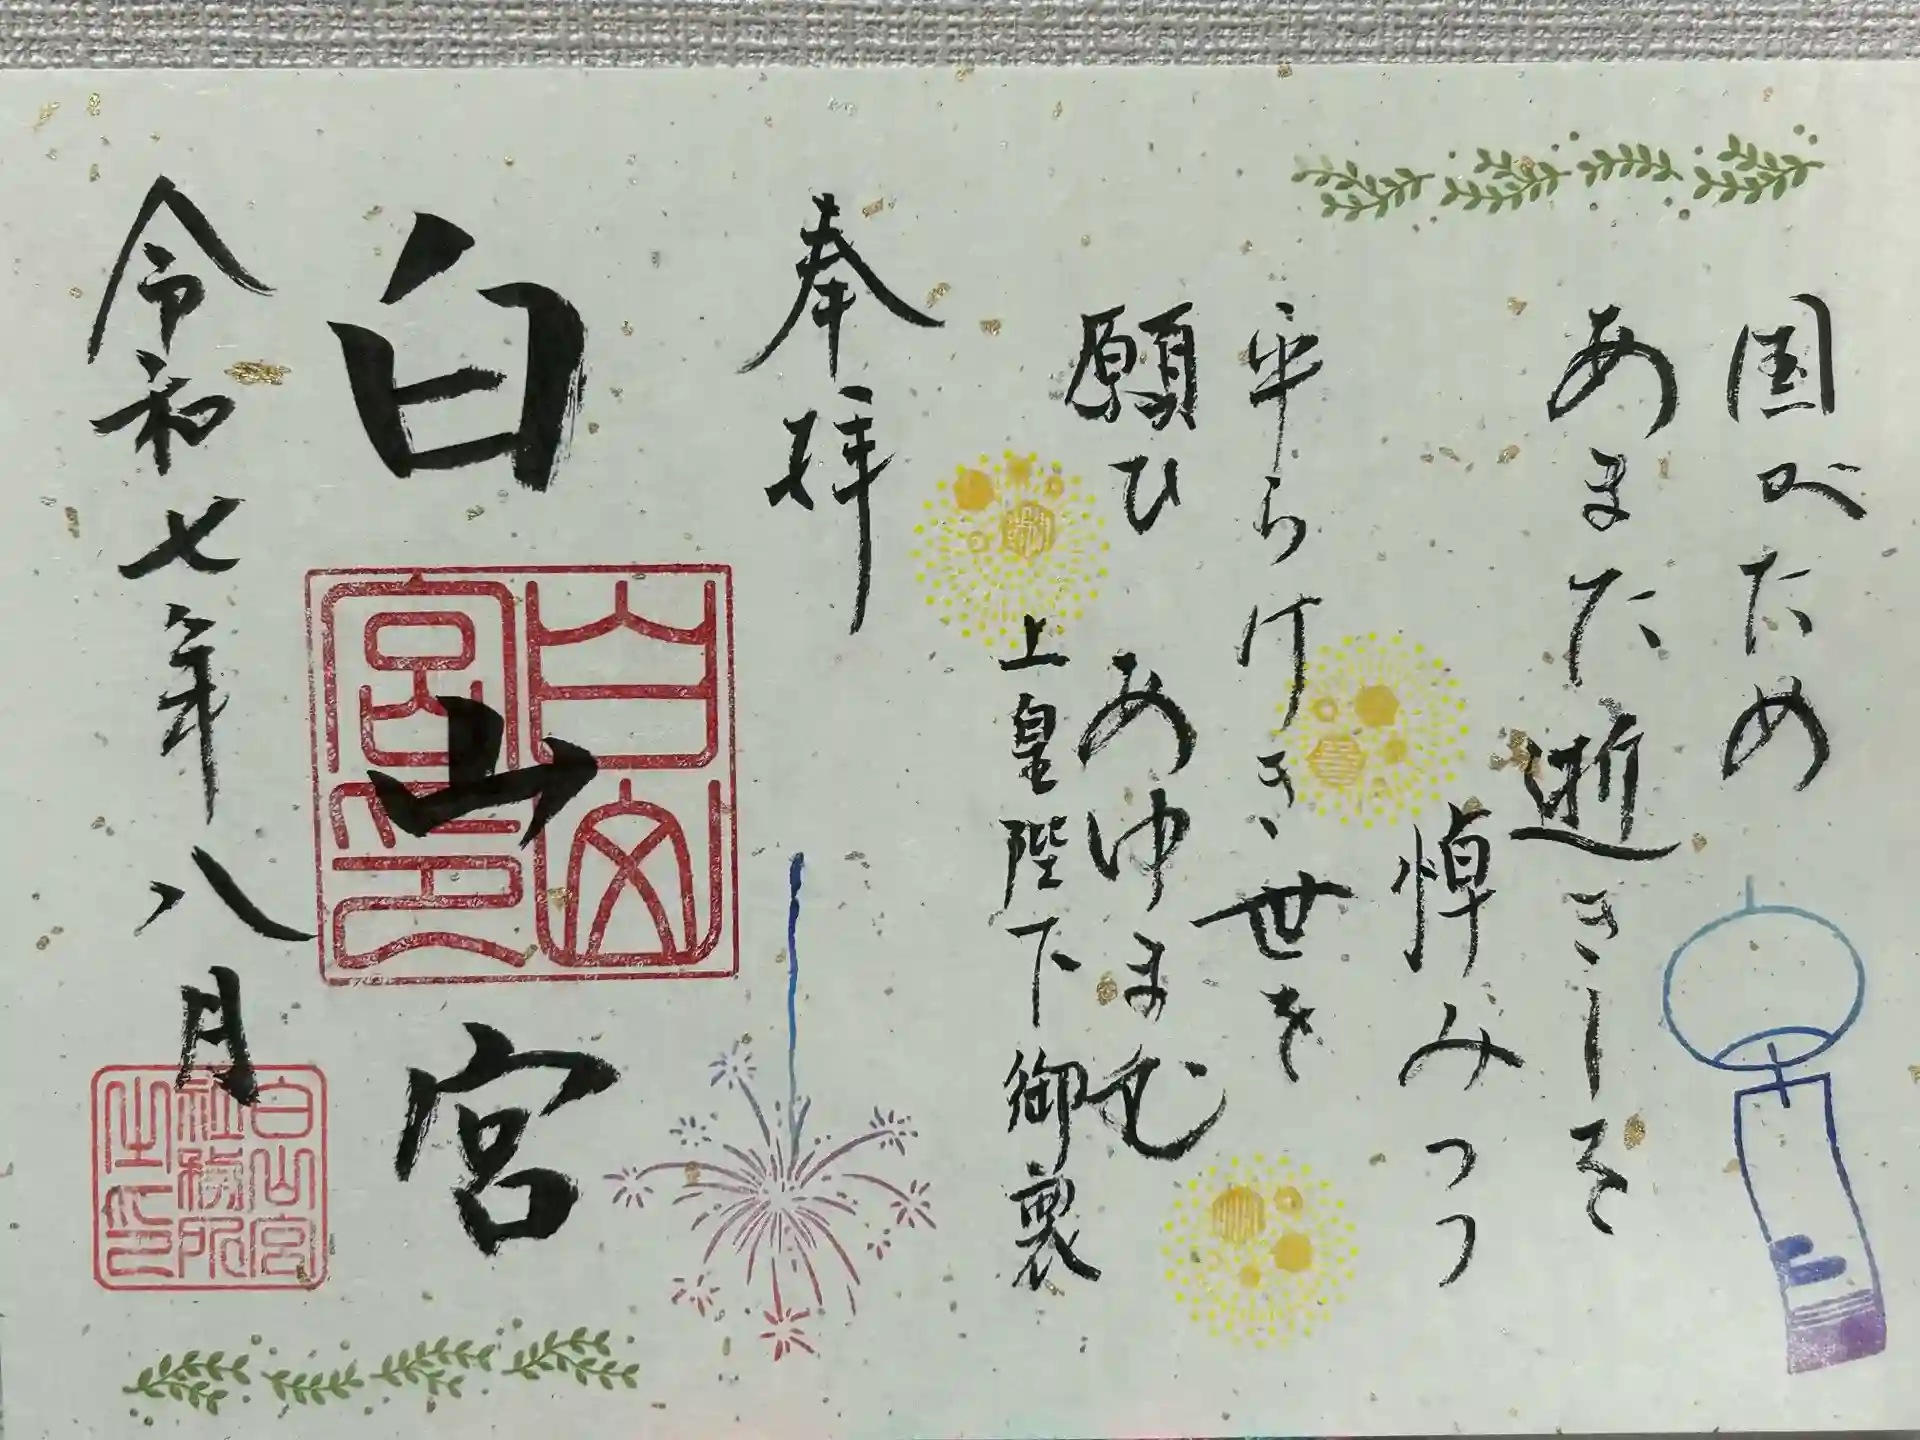 国がため
あまた逝きしを
悼みつつ
平らけき世を
願ひ あゆまむ
上皇陛下御製
奉拝
白山宮
白山宮印
令和七年八月
白山宮社務所之印